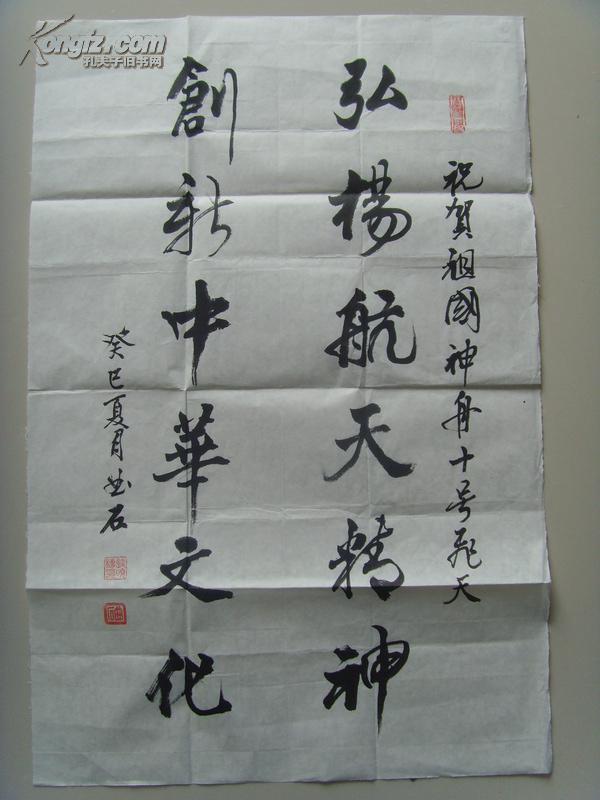 祝賀祖國神舟十号飛天
弘楊航天精神
創新中華文化
癸巳夏月
石
Kongfz.com
孔夫子旧书网